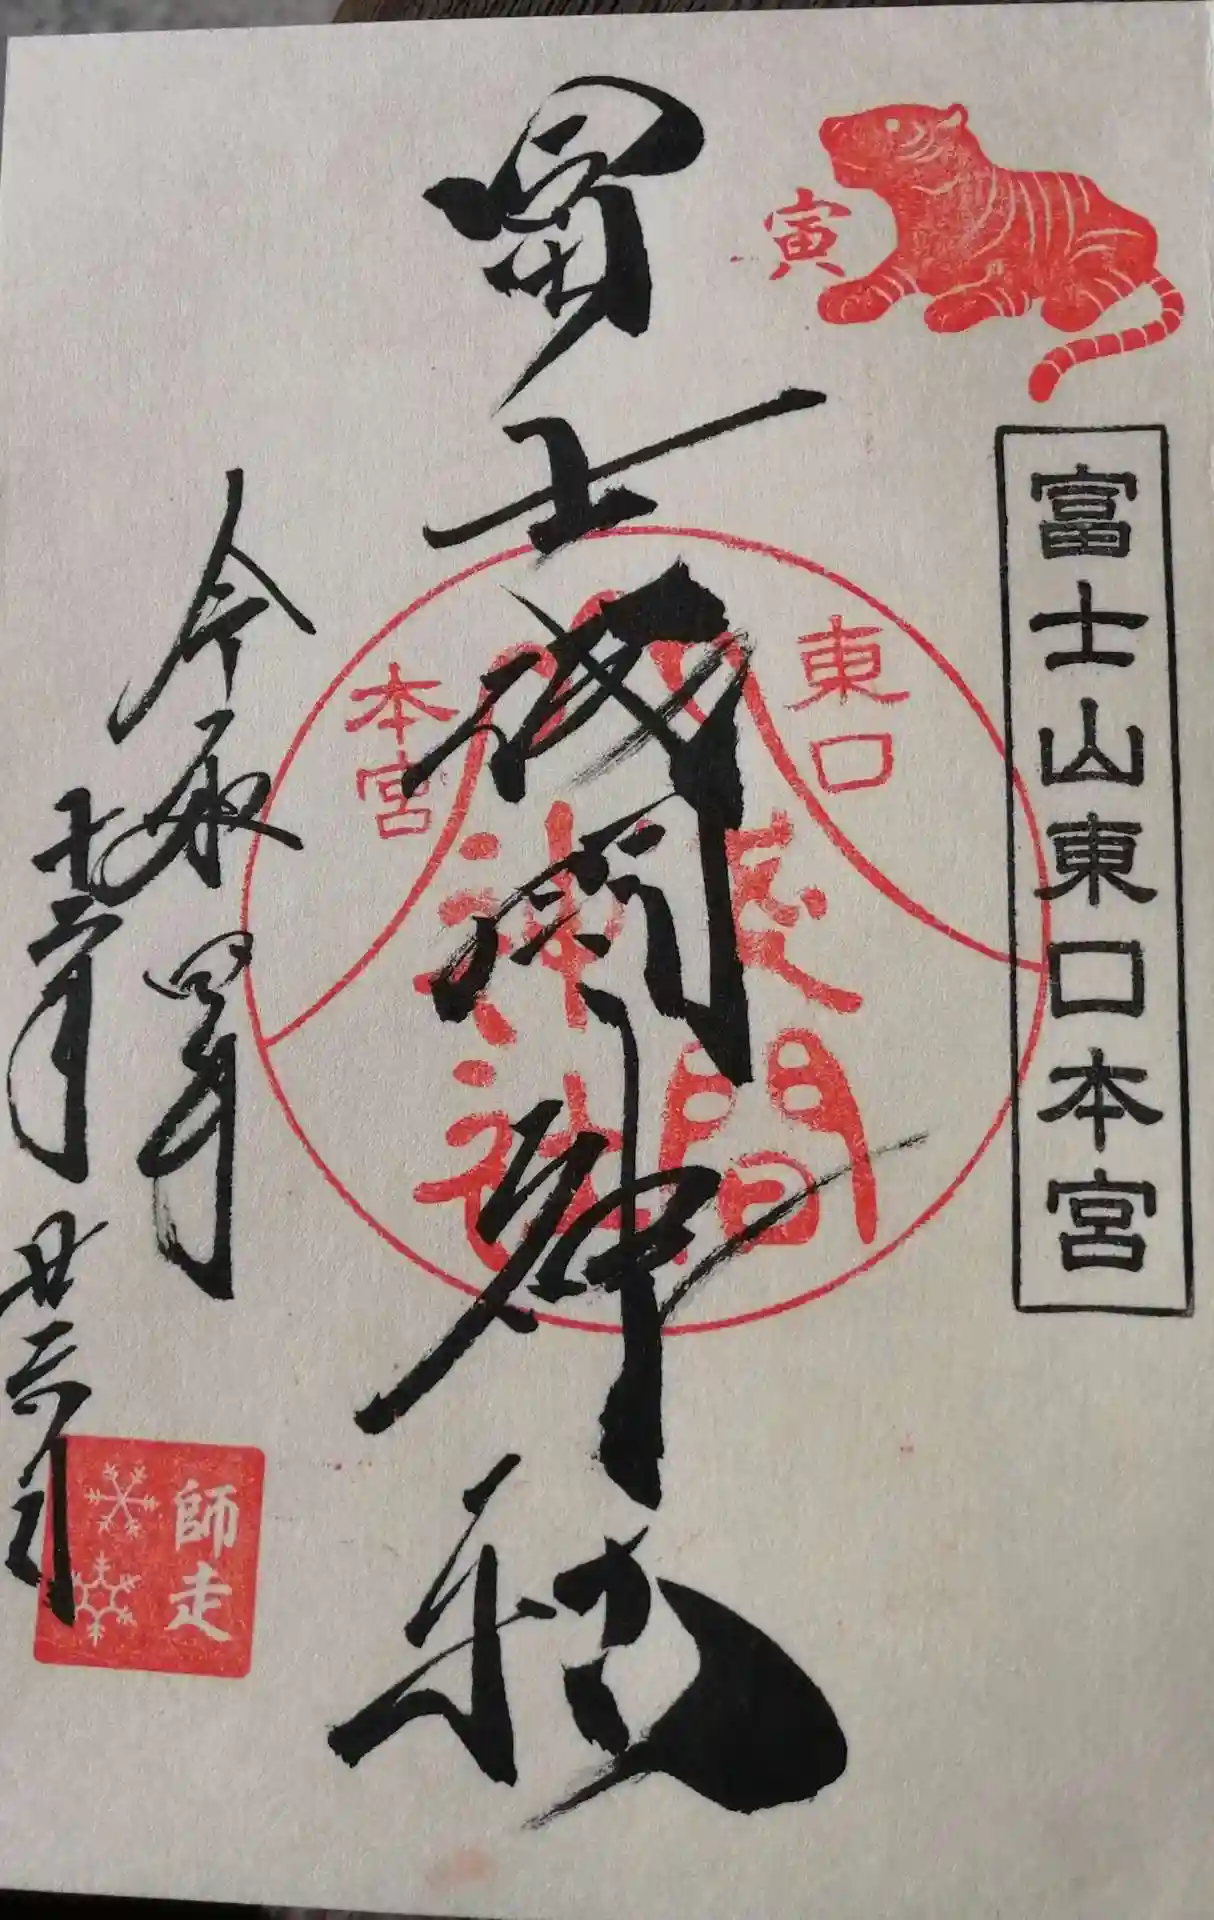 寅
富士山東口本宮
冨士浅間神社
東口
本宮
浅間
神社
令和四年
十二月廿六日
師走